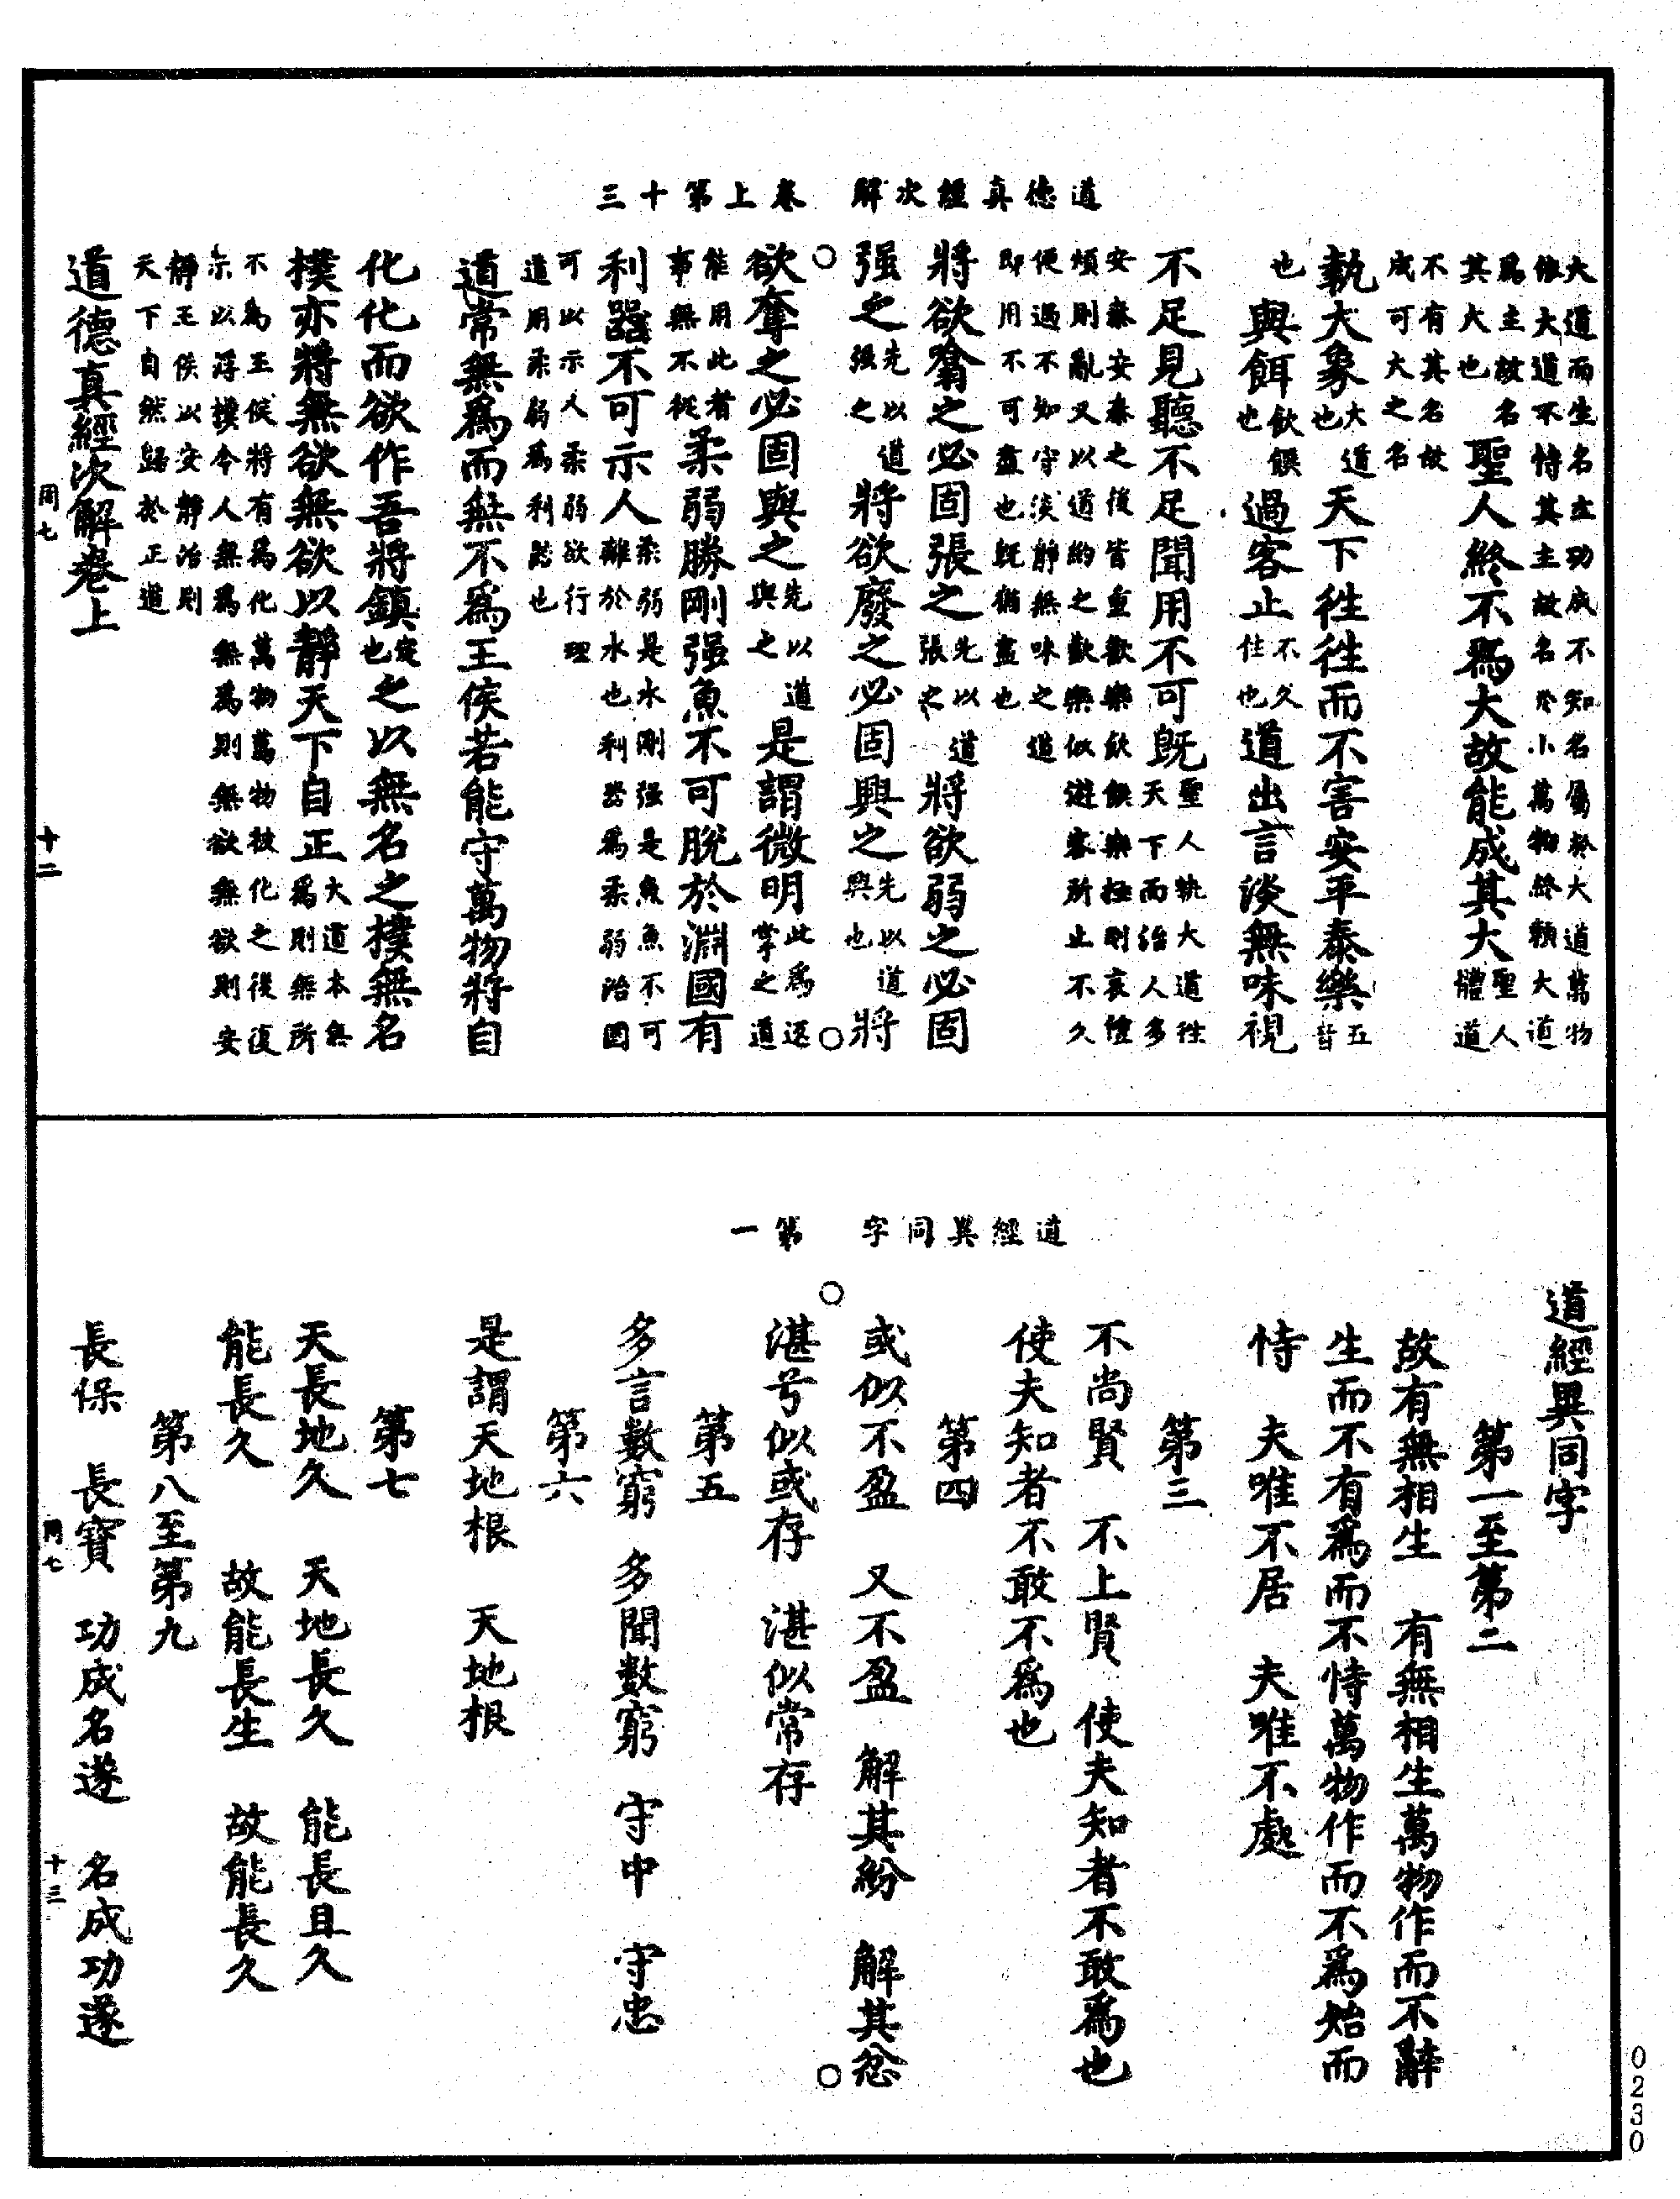 道德真經次解　卷上第十三
大道而生名立功成不知名屬於大道萬物
依大道不恃其主故名於小萬物終賴大道
爲主故名
其大也
聖人終不爲大故能成其大
聖人
體道
不有其名故
成可大之名
執大象
大道
也
天下徃徃而不害安平泰樂
五
音
也
與餌
飲饌
也
過客止
不久
住也
道出言淡無味視
不足見聽不足聞用不可旣
聖人執大道徃
天下而治人多
安泰安泰之後皆重歡樂飲饌樂極則哀禮
煩則亂又以道約之歡樂似遊客所止不久
便過不知守淡靜無味之道
即用不可盡也旣猶盡也
將欲噏之必固張之
先以道
張之
將欲弱之必固
强之
先以道
强之
將欲廢之必固興之
先以道
興也
將
欲奪之必固與之
先以道
與之
是謂微明
此爲還
掌之道
能用此者
事無不從
柔弱勝剛强魚不可脫於淵國有
利器不可示人
柔弱是水剛强是魚魚不可
離於水也利器爲柔弱治國
可以示人柔弱欲行理
道用柔弱爲利器也
道常無爲而無不爲王侯若能守萬物將自
化化而欲作吾將鎮
定
也
之以無名之樸無名
樸亦將無欲無欲以靜天下自正
大道本無
爲則無所
不爲王侯將有爲化萬物萬物被化之後復
示以淳樸令人無爲無爲則無欲無欲則安
靜王侯以安靜治則
天下自然歸於正道
道德真經次解卷上
同七
十二
道經異同字　第一
道經異同字
第一至第二
故有無相生　有無相生萬物作而不辭
生而不有爲而不恃萬物作而不爲始而
恃　夫唯不居　夫唯不處
第三
不尚賢　不上賢　使夫知者不敢爲也
使夫知者不敢不爲也
第四
或似不盈　又不盈　解其紛　解其忿
湛兮似或存　湛似常存
第五
多言數窮　多聞數窮　守中　守忠
第六
是謂天地根　天地根
第七
天長地久　天地長久　能長且久
能長久　故能長生　故能長久
第八至第九
長保　長寶　功成名遂　名成功遂
同七
十三
0230